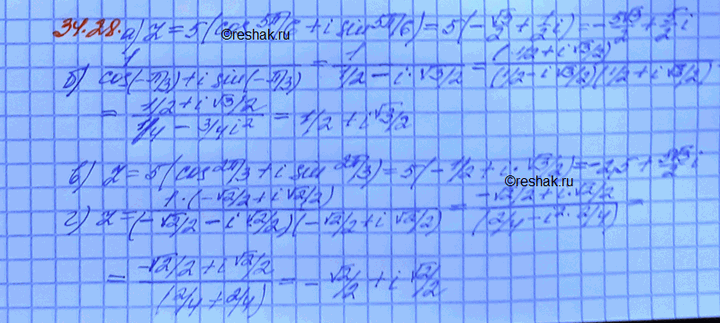 34.28. а) z = 5(cos 5π/6 + i sin 5π/6) = 5(-√3/2 + 1/2 i) = -5√3/2 + 5/2 i
©reshak.ru
б) 1/(cos(-π/3) + i sin(-π/3)) = 1/(1/2 - i·√3/2) = (1/2 + i√3/2)/((1/2 - i√3/2)(1/2 + i√3/2))
= (1/2 + i√3/2)/(1/4 - 3/4 i²) = 1/2 + i√3/2
в) z = 5(cos 2π/3 + i sin 2π/3) = 5(-1/2 + i·√3/2) = -2,5 + 5√3/2 i
©reshak.ru
г) z = 1·(-√2/2 + i√2/2)/((-√2/2 - i√2/2)(-√2/2 + i√2/2)) = (-√2/2 + i·√2/2)/(2/4 - i²·2/4) =
= (-√2/2 + i√2/2)/(2/4 + 2/4) = -√2/2 + i√2/2